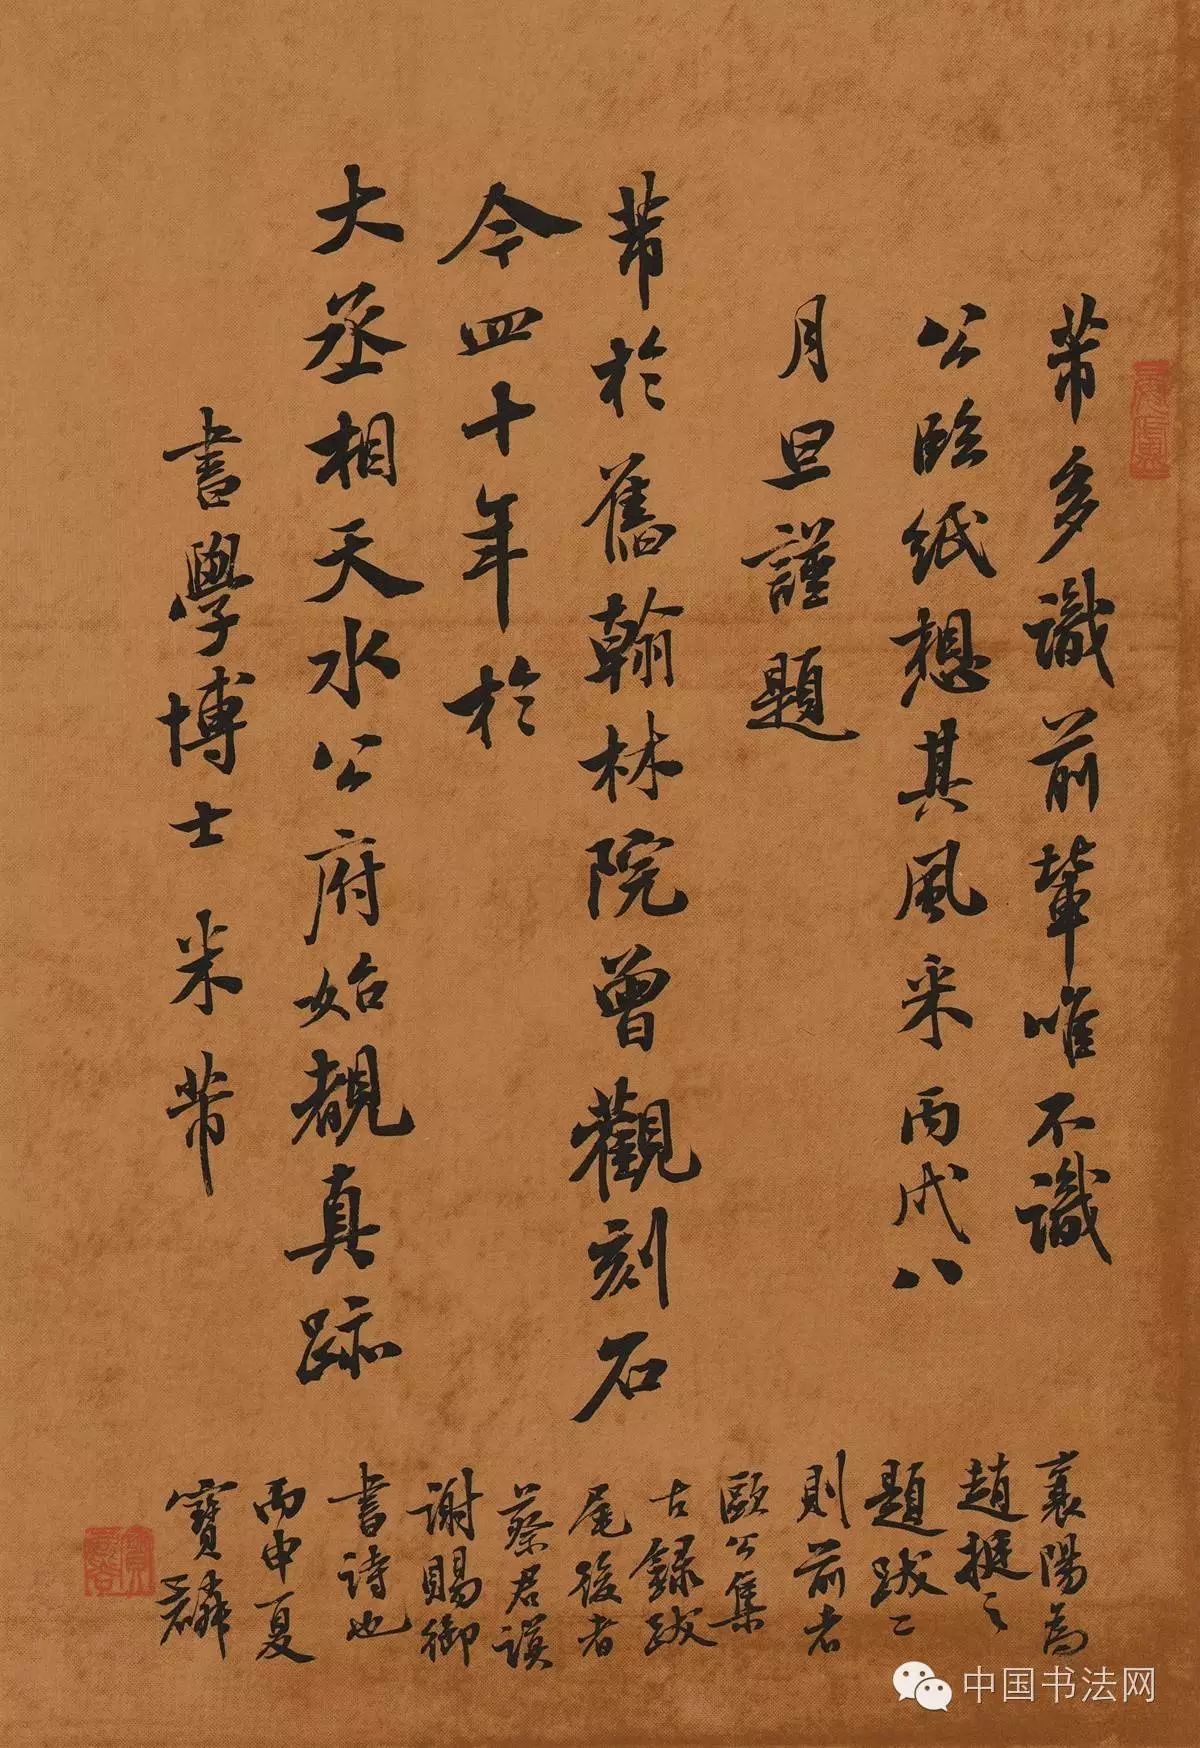 芾多識前輩唯不識
公臨紙想其風采丙戌八
月旦謹題
芾於舊翰林院曾觀刻石
今四十年於
大丞相天水公府始觀真跡
書學博士米芾
襄陽為
趙挺之
題跋二
則前者
歐公集
古錄跋
尾後者
蔡君謨
謝賜御
書詩也
丙申夏
寶麟
中国书法网